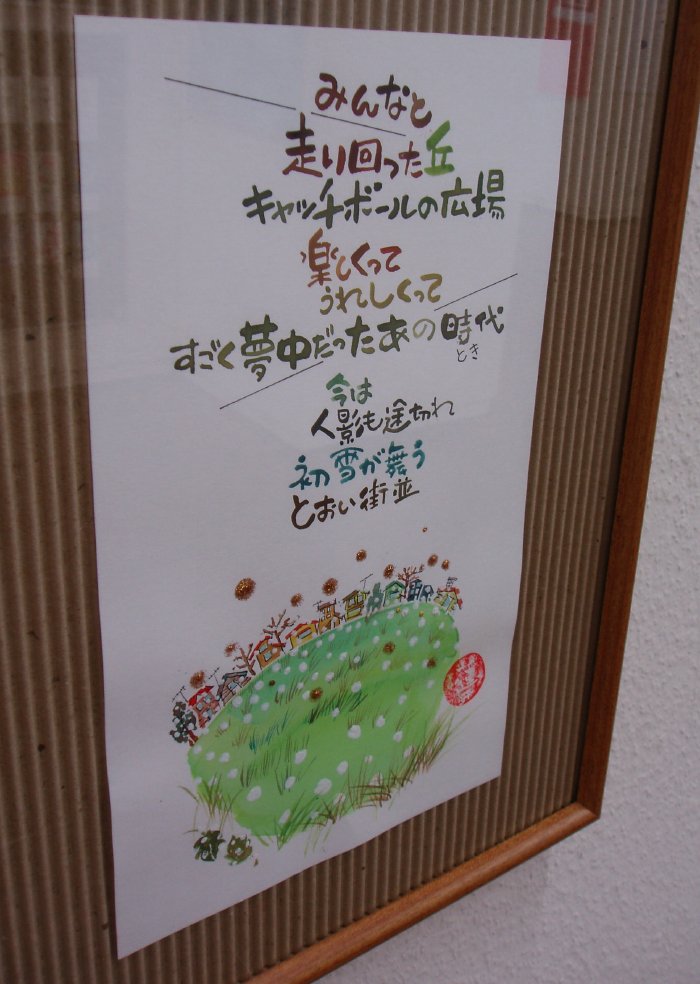 みんなと
走り回った丘
キャッチボールの広場
楽しくって
うれしくって
すごく夢中だったあの時代
とき
今は
人影も途切れ
初雪が舞う
とおい街並